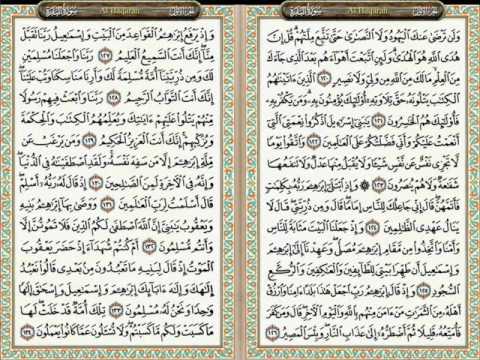 الجزء الأول
Al Baqarah
سورة البقرة
وَلَن تَرْضَىٰ عَنكَ ٱلْيَهُودُ وَلَا ٱلنَّصَـٰرَىٰ حَتَّىٰ تَتَّبِعَ مِلَّتَهُمْ قُلْ إِنَّ
هُدَى ٱللَّهِ هُوَ ٱلْهُدَىٰ وَلَئِنِ ٱتَّبَعْتَ أَهْوَآءَهُم بَعْدَ ٱلَّذِى جَآءَكَ
مِنَ ٱلْعِلْمِ مَا لَكَ مِنَ ٱللَّهِ مِن وَلِىٍّ وَلَا نَصِيرٍ ١٢٠ ٱلَّذِينَ ءَاتَيْنَـٰهُمُ
ٱلْكِتَـٰبَ يَتْلُونَهُۥ حَقَّ تِلَاوَتِهِۦٓ أُو۟لَـٰٓئِكَ يُؤْمِنُونَ بِهِۦ وَمَن يَكْفُرْ بِهِۦ
فَأُو۟لَـٰٓئِكَ هُمُ ٱلْخَـٰسِرُونَ ١٢١ يَـٰبَنِىٓ إِسْرَٰٓءِيلَ ٱذْكُرُوا۟ نِعْمَتِىَ ٱلَّتِىٓ
أَنْعَمْتُ عَلَيْكُمْ وَأَنِّى فَضَّلْتُكُمْ عَلَى ٱلْعَـٰلَمِينَ ١٢٢ وَٱتَّقُوا۟ يَوْمًا
لَّا تَجْزِى نَفْسٌ عَن نَّفْسٍ شَيْـًٔا وَلَا يُقْبَلُ مِنْهَا عَدْلٌ وَلَا تَنفَعُهَا
شَفَـٰعَةٌ وَلَا هُمْ يُنصَرُونَ ١٢٣ وَإِذِ ٱبْتَلَىٰٓ إِبْرَٰهِـۧمَ رَبُّهُۥ بِكَلِمَـٰتٍ
فَأَتَمَّهُنَّ قَالَ إِنِّى جَاعِلُكَ لِلنَّاسِ إِمَامًا قَالَ وَمِن ذُرِّيَّتِى قَالَ لَا
يَنَالُ عَهْدِى ٱلظَّـٰلِمِينَ ١٢٤ وَإِذْ جَعَلْنَا ٱلْبَيْتَ مَثَابَةً لِّلنَّاسِ
وَأَمْنًا وَٱتَّخِذُوا۟ مِن مَّقَامِ إِبْرَٰهِـۧمَ مُصَلًّى وَعَهِدْنَآ إِلَىٰٓ إِبْرَٰهِـۧمَ
وَإِسْمَـٰعِيلَ أَن طَهِّرَا بَيْتِىَ لِلطَّآئِفِينَ وَٱلْعَـٰكِفِينَ وَٱلرُّكَّعِ
ٱلسُّجُودِ ١٢٥ وَإِذْ قَالَ إِبْرَٰهِـۧمُ رَبِّ ٱجْعَلْ هَـٰذَا بَلَدًا ءَامِنًا وَٱرْزُقْ
أَهْلَهُۥ مِنَ ٱلثَّمَرَٰتِ مَنْ ءَامَنَ مِنْهُم بِٱللَّهِ وَٱلْيَوْمِ ٱلْـَٔاخِرِ قَالَ وَمَن كَفَرَ
فَأُمَتِّعُهُۥ قَلِيلًا ثُمَّ أَضْطَرُّهُۥٓ إِلَىٰ عَذَابِ ٱلنَّارِ وَبِئْسَ ٱلْمَصِيرُ ١٢٦
الجزء الأول
Al Baqarah
سورة البقرة
وَإِذْ يَرْفَعُ إِبْرَٰهِـۧمُ ٱلْقَوَاعِدَ مِنَ ٱلْبَيْتِ وَإِسْمَـٰعِيلُ رَبَّنَا تَقَبَّلْ
مِنَّآ إِنَّكَ أَنتَ ٱلسَّمِيعُ ٱلْعَلِيمُ ١٢٧ رَبَّنَا وَٱجْعَلْنَا مُسْلِمَيْنِ
لَكَ وَمِن ذُرِّيَّتِنَآ أُمَّةً مُّسْلِمَةً لَّكَ وَأَرِنَا مَنَاسِكَنَا وَتُبْ عَلَيْنَآ
إِنَّكَ أَنتَ ٱلتَّوَّابُ ٱلرَّحِيمُ ١٢٨ رَبَّنَا وَٱبْعَثْ فِيهِمْ رَسُولًا
مِّنْهُمْ يَتْلُوا۟ عَلَيْهِمْ ءَايَـٰتِكَ وَيُعَلِّمُهُمُ ٱلْكِتَـٰبَ وَٱلْحِكْمَةَ
وَيُزَكِّيهِمْ إِنَّكَ أَنتَ ٱلْعَزِيزُ ٱلْحَكِيمُ ١٢٩ وَمَن يَرْغَبُ عَن
مِّلَّةِ إِبْرَٰهِـۧمَ إِلَّا مَن سَفِهَ نَفْسَهُۥ وَلَقَدِ ٱصْطَفَيْنَـٰهُ فِى ٱلدُّنْيَا
وَإِنَّهُۥ فِى ٱلْـَٔاخِرَةِ لَمِنَ ٱلصَّـٰلِحِينَ ١٣٠ إِذْ قَالَ لَهُۥ رَبُّهُۥٓ أَسْلِمْ
قَالَ أَسْلَمْتُ لِرَبِّ ٱلْعَـٰلَمِينَ ١٣١ وَوَصَّىٰ بِهَآ إِبْرَٰهِـۧمُ بَنِيهِ
وَيَعْقُوبُ يَـٰبَنِىَّ إِنَّ ٱللَّهَ ٱصْطَفَىٰ لَكُمُ ٱلدِّينَ فَلَا تَمُوتُنَّ إِلَّا
وَأَنتُم مُّسْلِمُونَ ١٣٢ أَمْ كُنتُمْ شُهَدَآءَ إِذْ حَضَرَ يَعْقُوبَ
ٱلْمَوْتُ إِذْ قَالَ لِبَنِيهِ مَا تَعْبُدُونَ مِنۢ بَعْدِى قَالُوا۟ نَعْبُدُ
إِلَـٰهَكَ وَإِلَـٰهَ ءَابَآئِكَ إِبْرَٰهِـۧمَ وَإِسْمَـٰعِيلَ وَإِسْحَـٰقَ إِلَـٰهًا
وَٰحِدًا وَنَحْنُ لَهُۥ مُسْلِمُونَ ١٣٣ تِلْكَ أُمَّةٌ قَدْ خَلَتْ لَهَا
مَا كَسَبَتْ وَلَكُم مَّا كَسَبْتُمْ وَلَا تُسْـَٔلُونَ عَمَّا كَانُوا۟ يَعْمَلُونَ ١٣٤